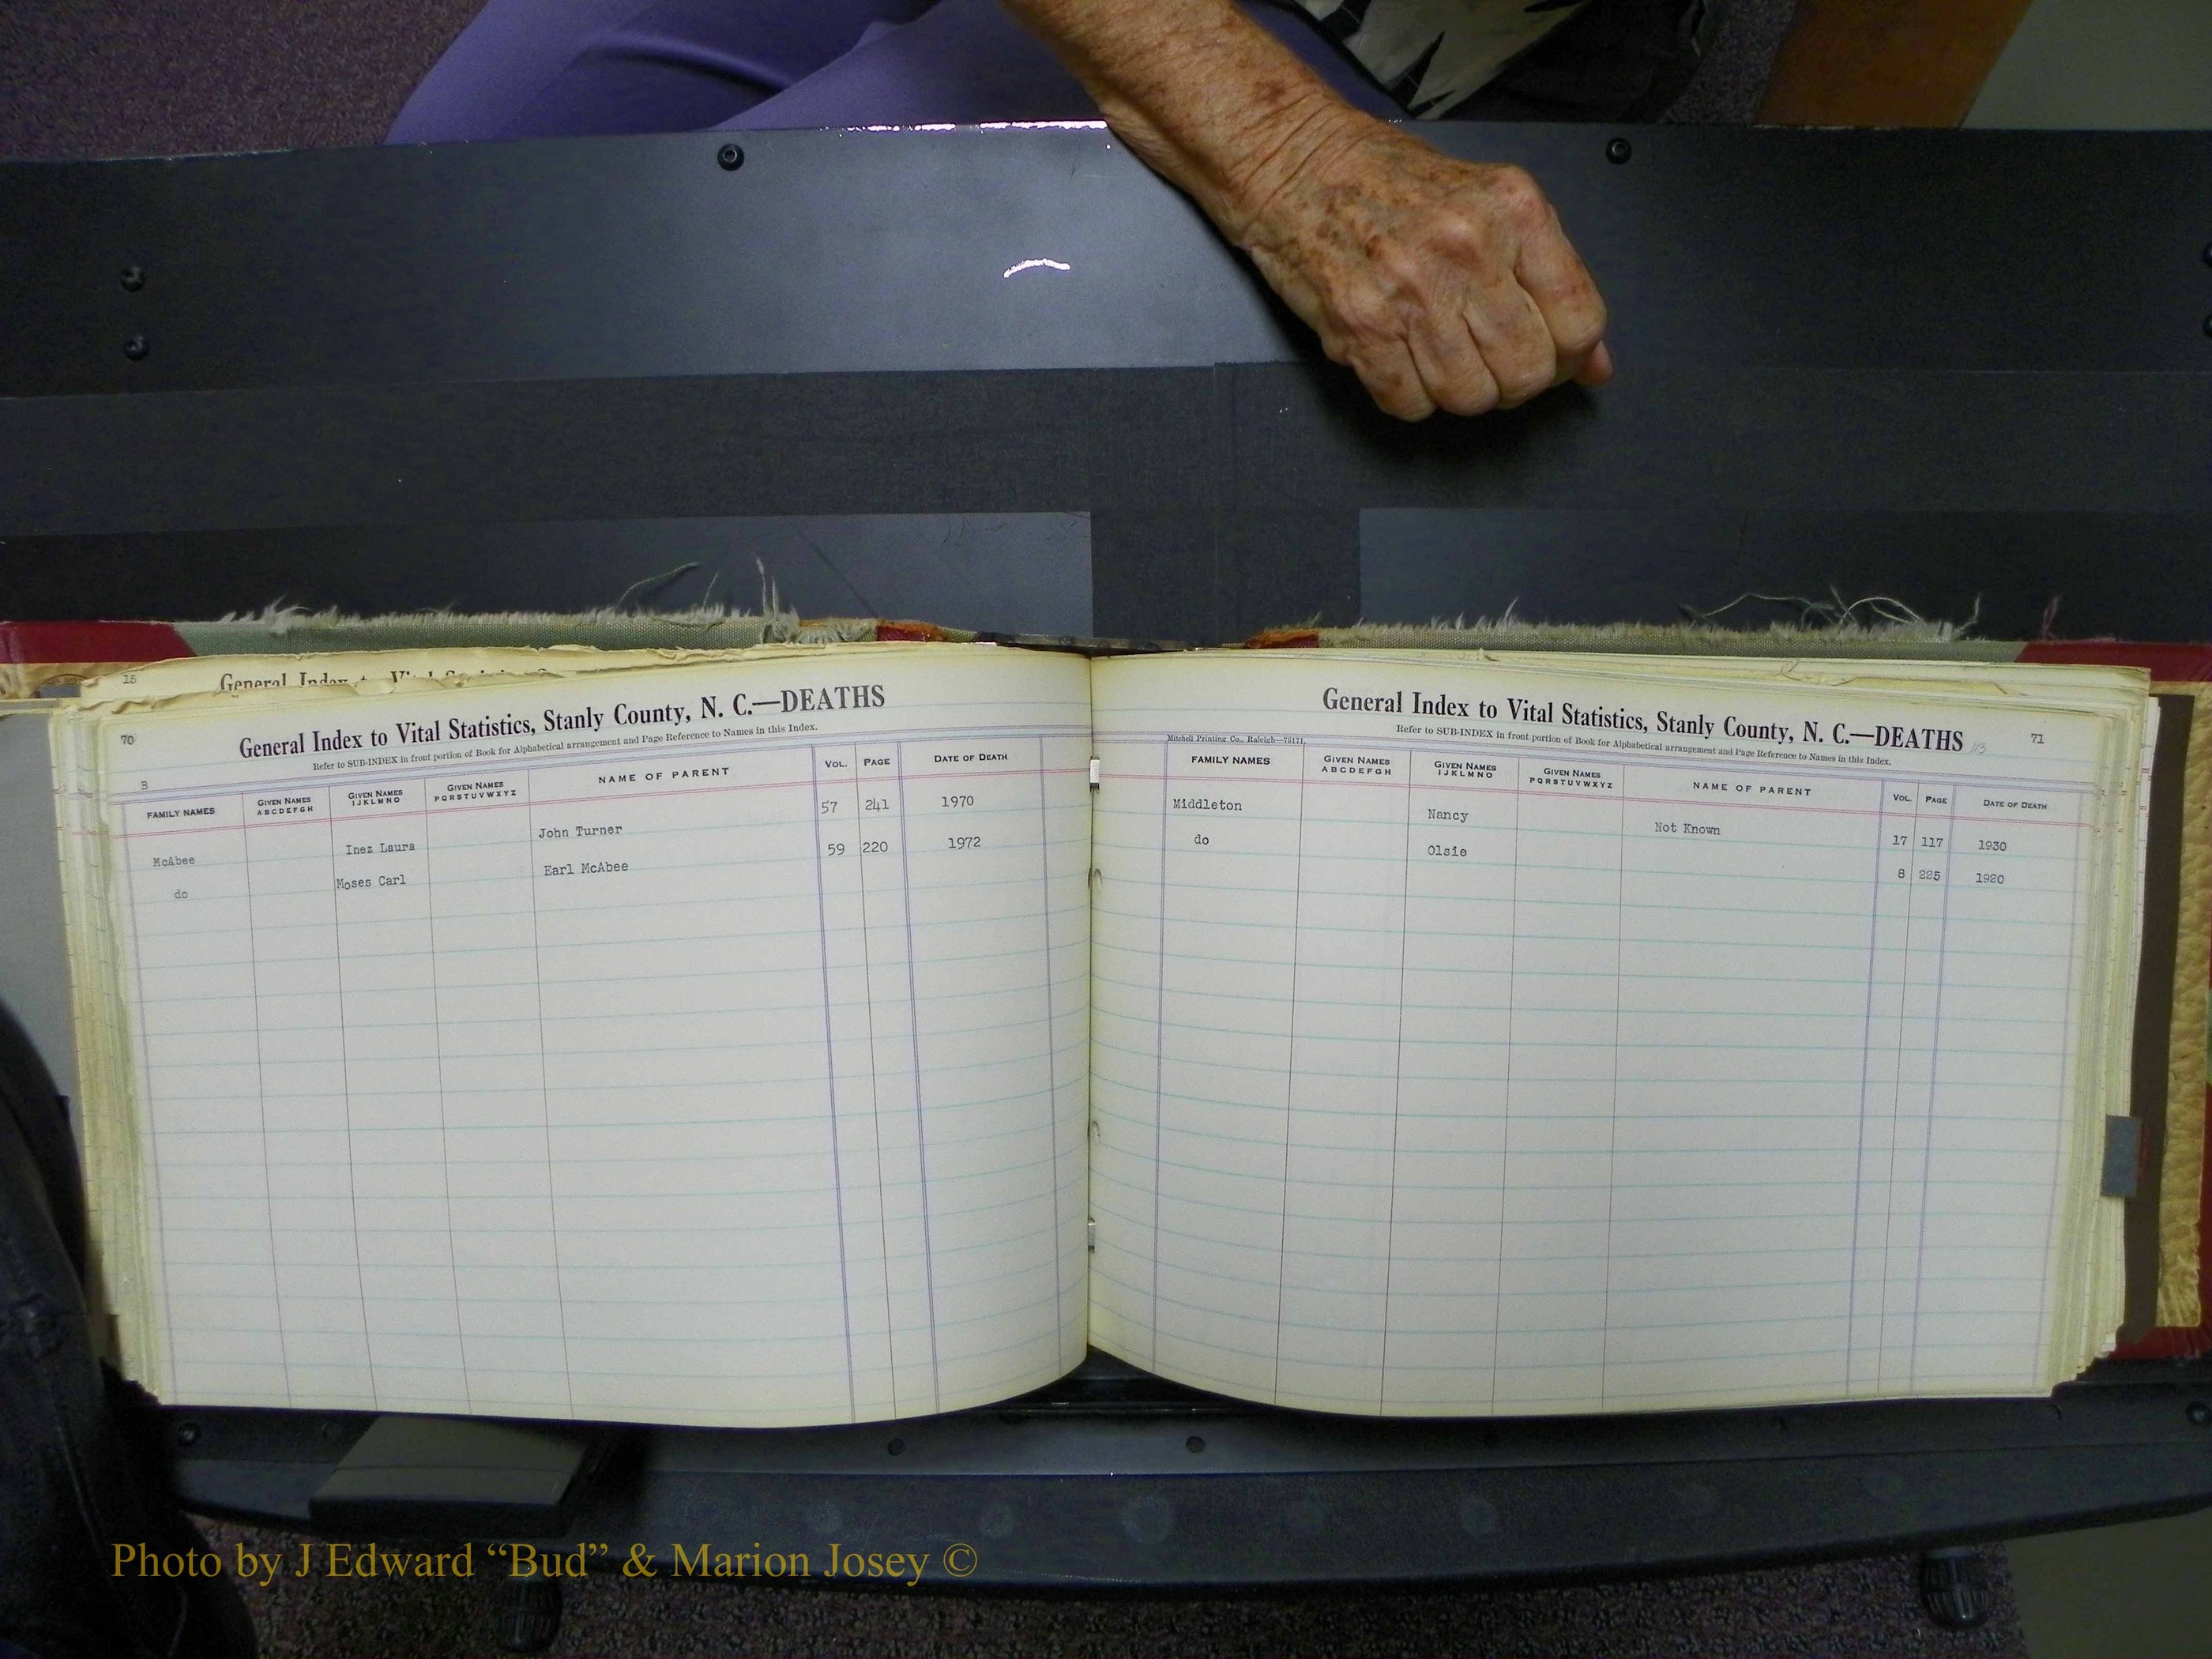 15
General Index to Vital Statistics
70
General Index to Vital Statistics, Stanly County, N. C.—DEATHS
Refer to SUB-INDEX in front portion of Book for Alphabetical arrangement and Page Reference to Names in this Index.
B
FAMILY NAMES GIVEN NAMES ABCDEFGH GIVEN NAMES IJKLMNO GIVEN NAMES PQRSTUVWXYZ NAME OF PARENT VOL. PAGE DATE OF DEATH
McAbee Inez Laura John Turner 57 241 1970
do Moses Carl Earl McAbee 59 220 1972
General Index to Vital Statistics, Stanly County, N. C.—DEATHS 113 71
Refer to SUB-INDEX in front portion of Book for Alphabetical arrangement and Page Reference to Names in this Index.
Mitchell Printing Co., Raleigh—75171.
FAMILY NAMES GIVEN NAMES ABCDEFGH GIVEN NAMES IJKLMNO GIVEN NAMES PQRSTUVWXYZ NAME OF PARENT VOL. PAGE DATE OF DEATH
Middleton Nancy Not Known 17 117 1930
do Olsie 8 225 1920
Photo by J Edward “Bud” & Marion Josey ©